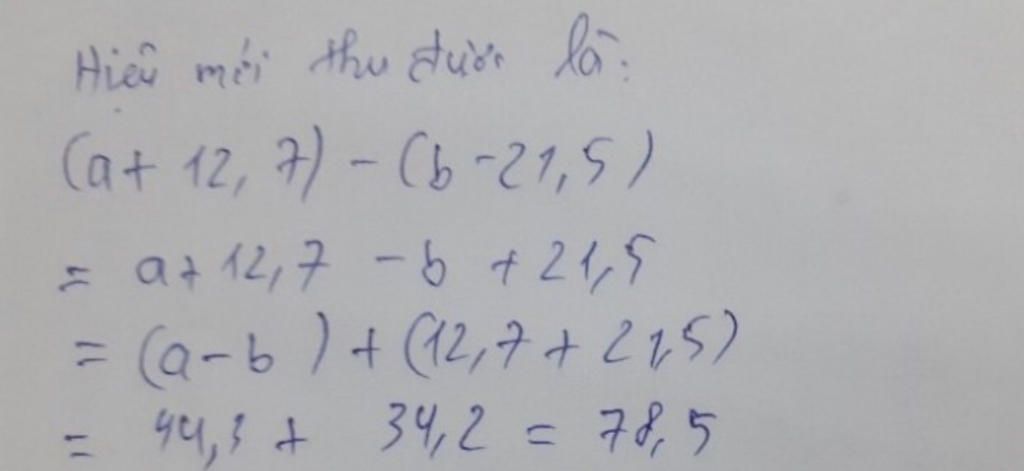 Hiệu mới thu được là:
(a + 12,7) - (b - 21,5)
= a + 12,7 - b + 21,5
= (a - b) + (12,7 + 21,5)
= 44,3 + 34,2 = 78,5